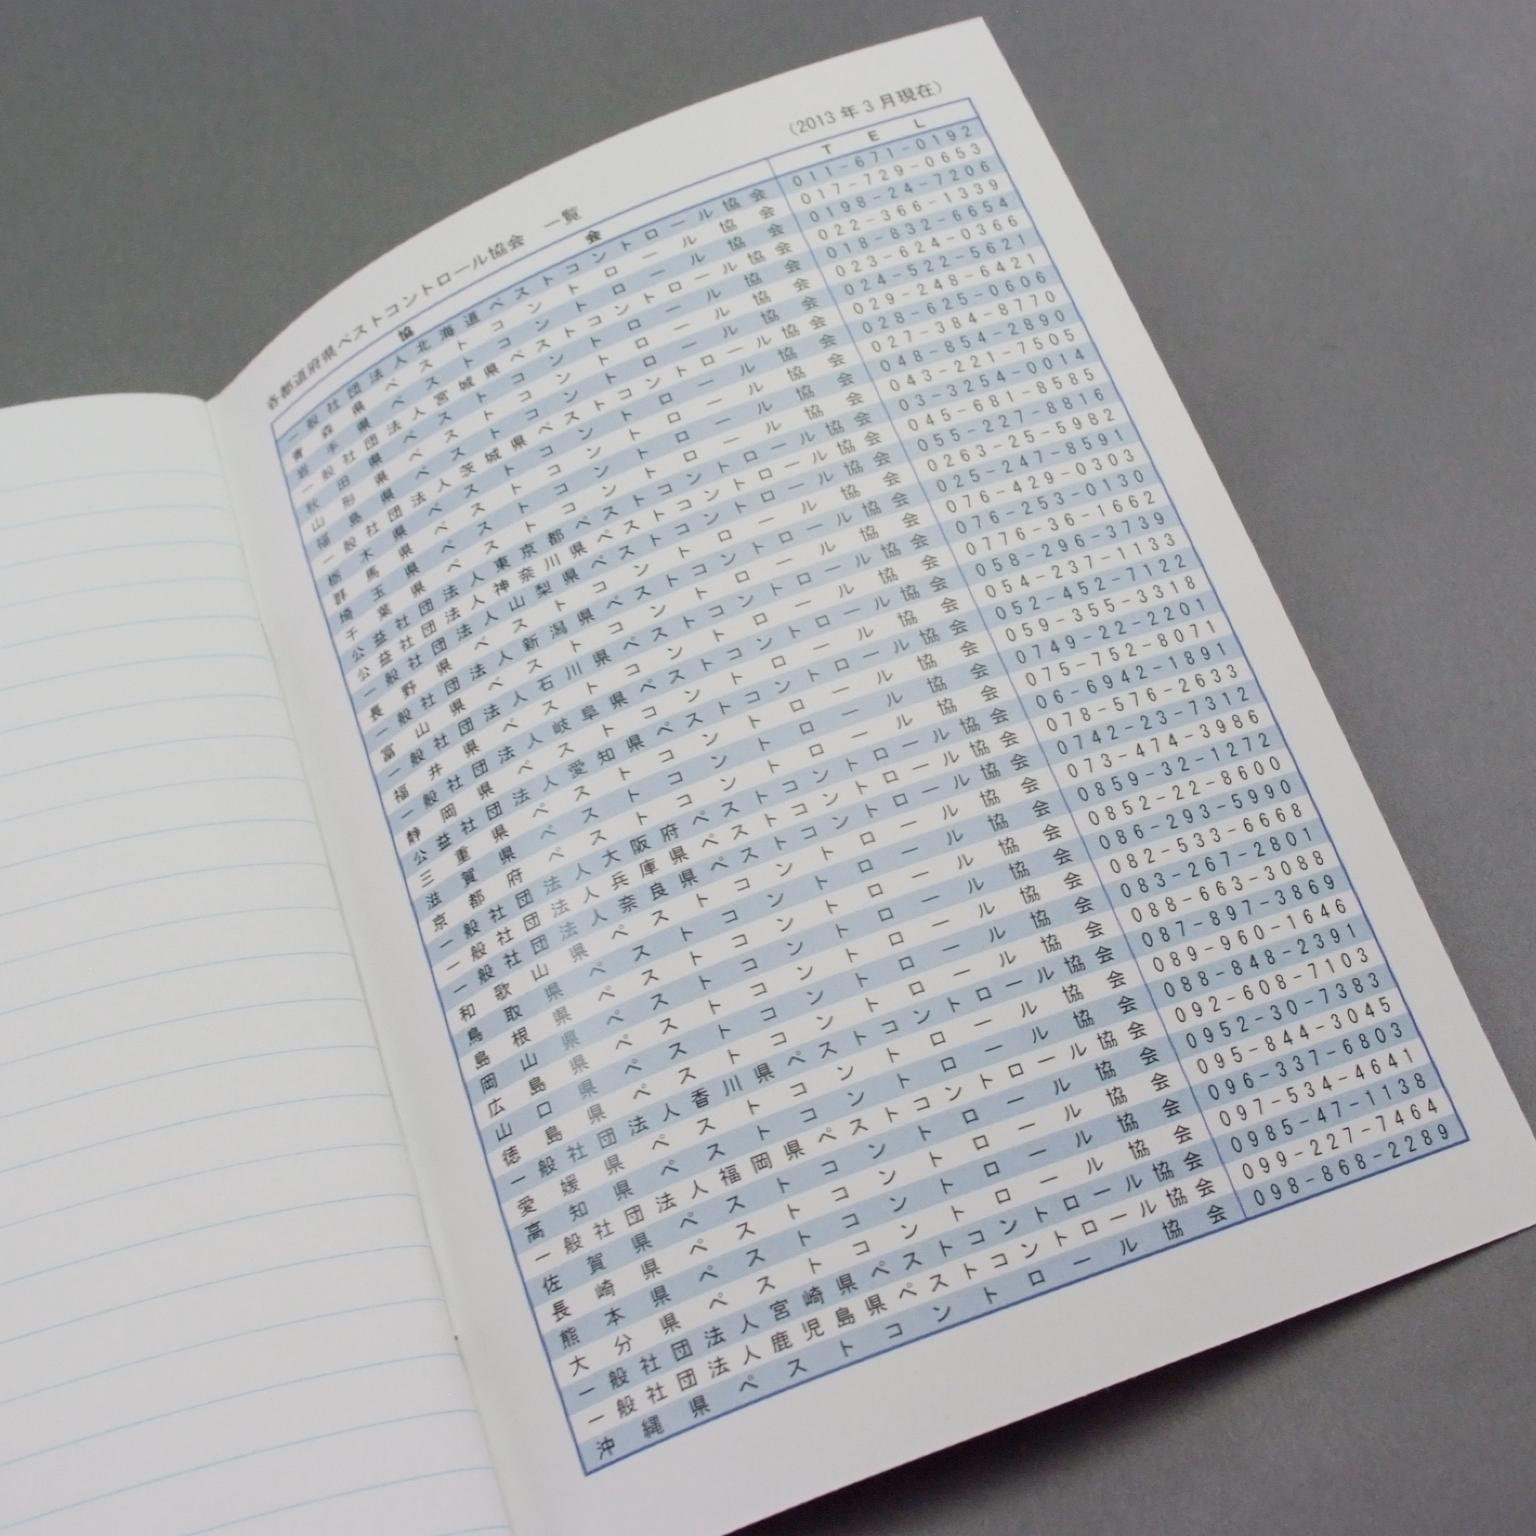 各都道府県ペストコントロール協会 一覧 （2013年3月現在）
協会 TEL
一般社団法人北海道ペストコントロール協会 011-671-0192
青森県ペストコントロール協会 017-729-0653
岩手県ペストコントロール協会 0198-24-7206
一般社団法人宮城県ペストコントロール協会 022-366-1339
秋田県ペストコントロール協会 018-832-6654
山形県ペストコントロール協会 023-624-0366
福島県ペストコントロール協会 024-522-5621
一般社団法人茨城県ペストコントロール協会 029-248-6421
栃木県ペストコントロール協会 028-625-0606
群馬県ペストコントロール協会 027-384-8770
埼玉県ペストコントロール協会 048-854-2890
千葉県ペストコントロール協会 043-221-7505
公益社団法人東京都ペストコントロール協会 03-3254-0014
公益社団法人神奈川県ペストコントロール協会 045-681-8585
一般社団法人山梨県ペストコントロール協会 055-227-8816
長野県ペストコントロール協会 0263-25-5982
一般社団法人新潟県ペストコントロール協会 025-247-8591
富山県ペストコントロール協会 076-429-0303
一般社団法人石川県ペストコントロール協会 076-253-0130
福井県ペストコントロール協会 0776-36-1662
一般社団法人岐阜県ペストコントロール協会 058-296-3739
静岡県ペストコントロール協会 054-237-1133
公益社団法人愛知県ペストコントロール協会 052-452-7122
三重県ペストコントロール協会 059-355-3318
滋賀県ペストコントロール協会 0749-22-2201
京都府ペストコントロール協会 075-752-8071
一般社団法人大阪府ペストコントロール協会 06-6942-1891
一般社団法人兵庫県ペストコントロール協会 078-576-2633
一般社団法人奈良県ペストコントロール協会 0742-23-7312
和歌山県ペストコントロール協会 073-474-3986
鳥取県ペストコントロール協会 0859-32-1272
島根県ペストコントロール協会 0852-22-8600
岡山県ペストコントロール協会 086-293-5990
広島県ペストコントロール協会 082-533-6668
山口県ペストコントロール協会 083-267-2801
徳島県ペストコントロール協会 088-663-3088
一般社団法人香川県ペストコントロール協会 087-897-3869
愛媛県ペストコントロール協会 089-960-1646
高知県ペストコントロール協会 088-848-2391
一般社団法人福岡県ペストコントロール協会 092-608-7103
佐賀県ペストコントロール協会 0952-30-7383
長崎県ペストコントロール協会 095-844-3045
熊本県ペストコントロール協会 096-337-6803
大分県ペストコントロール協会 097-534-4641
一般社団法人宮崎県ペストコントロール協会 0985-47-1138
一般社団法人鹿児島県ペストコントロール協会 099-227-7464
沖縄県ペストコントロール協会 098-868-2289